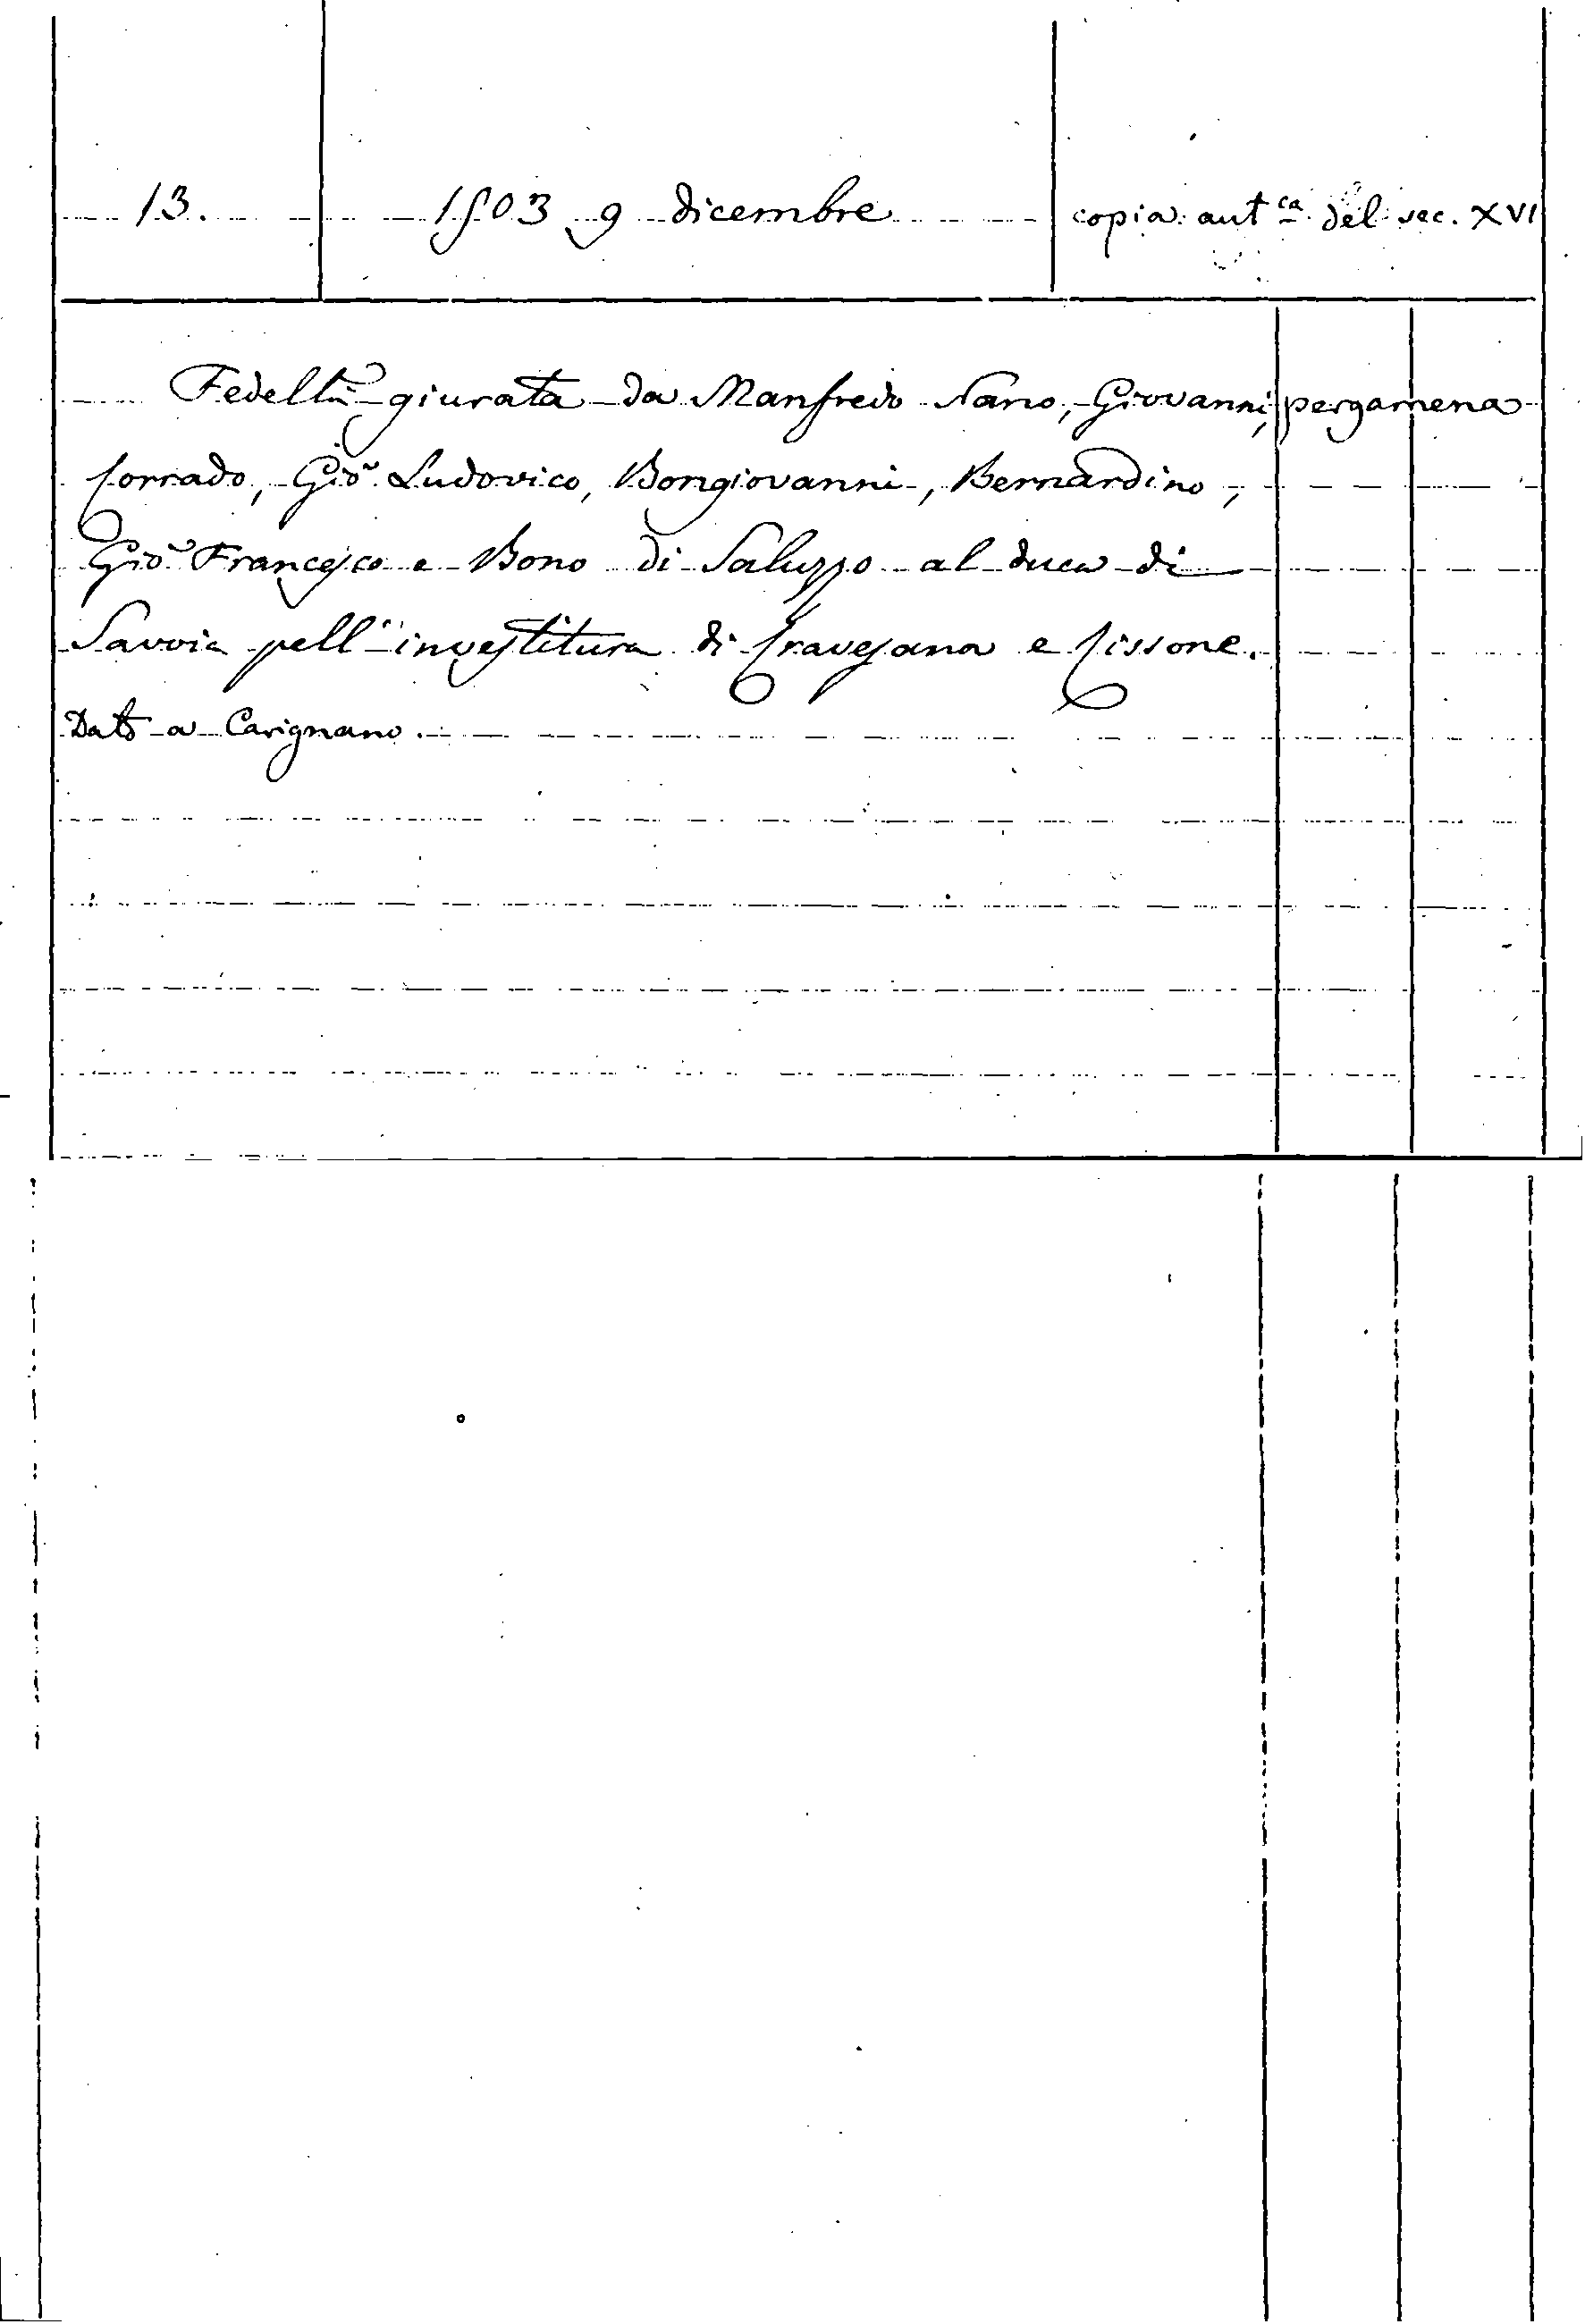 13. 1503 9 dicembre copia aut.ca del sec. XVI
Fedeltà giurata da Manfredo Nano, Giovanni, pergamena
Corrado, Giõ Ludovico, Bongiovanni, Bernardino,
Giõ Francesco e Bono di Saluzzo al duca di
Savoia pell'investitura di Cravesana e Cissone.
Dato a Carignano.